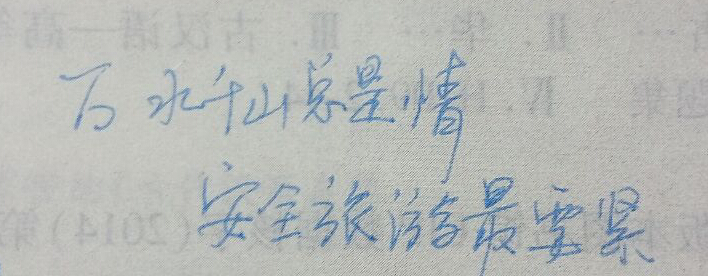 万水千山总是情
安全旅游最要紧